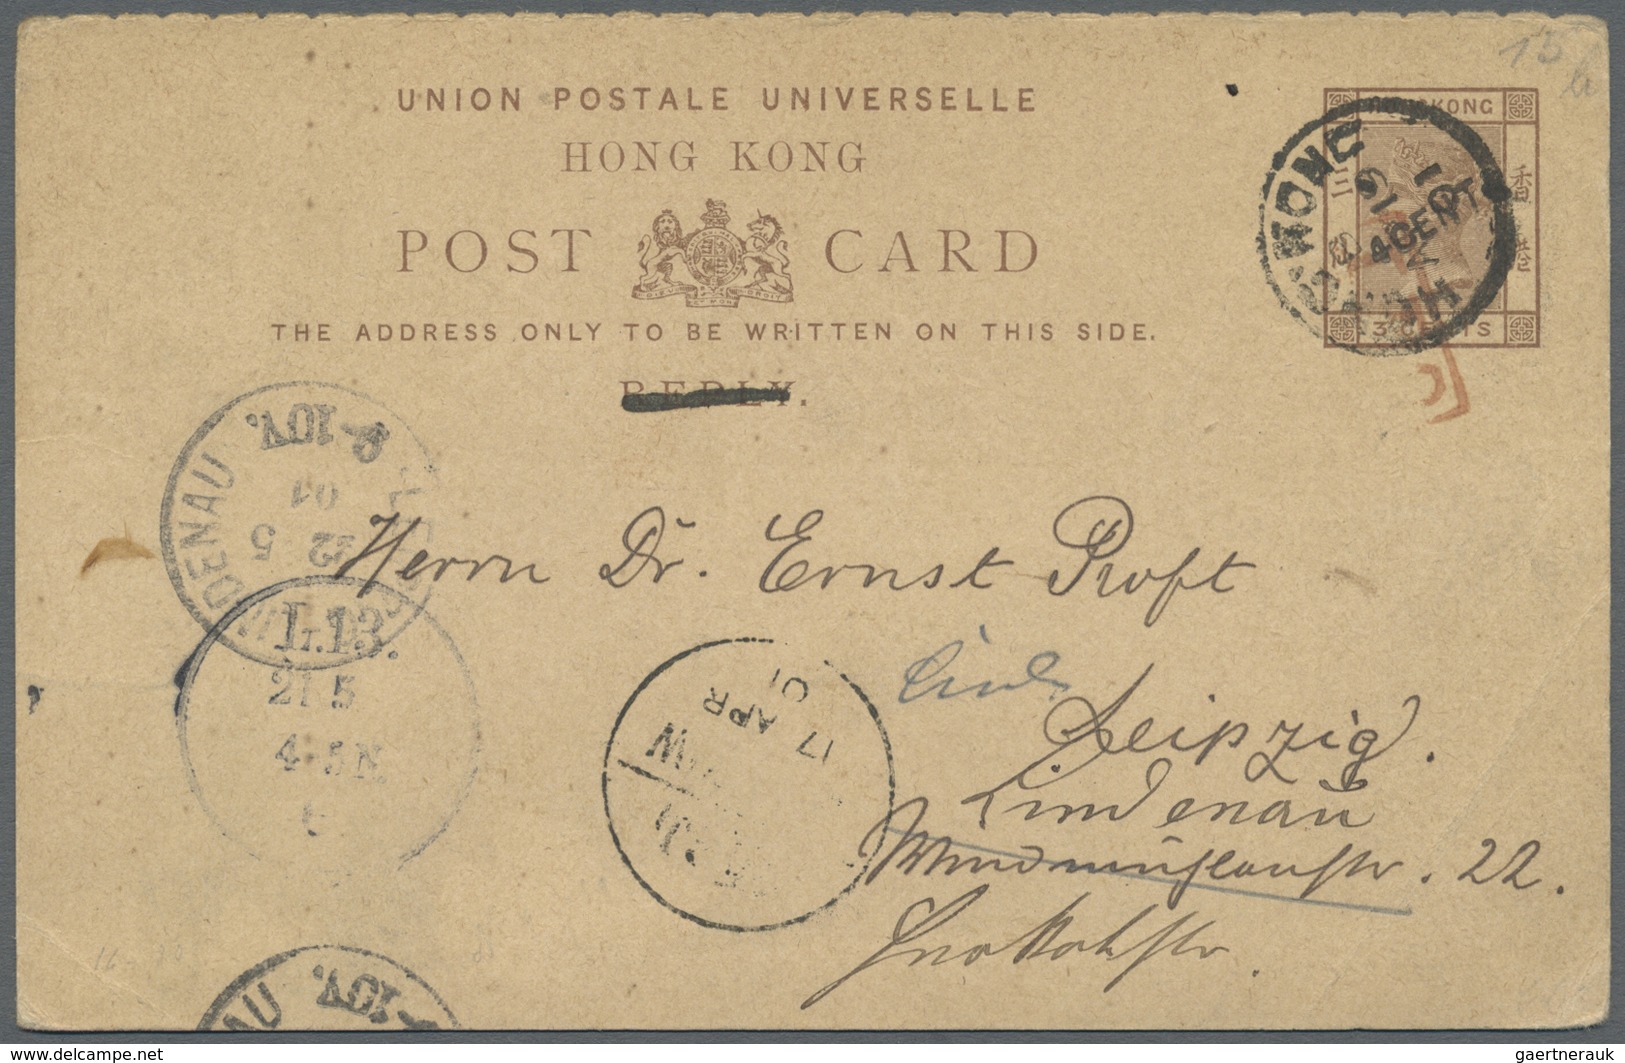 15
UNION POSTALE UNIVERSELLE
HONG KONG
POST CARD
THE ADDRESS ONLY TO BE WRITTEN ON THIS SIDE.
REPLY.
KONG
三
香
港
4 CENTS
3 CENTS
HONG KONG
9-10V.
22 5
01
LINDENAU
L.13.
21 5
4-5N.
17 APR
01
Herrn Dr. Ernst Proft
Leipzig.
Lindenau
22.
10V.
AU
www.delcampe.net
gaertnerauk